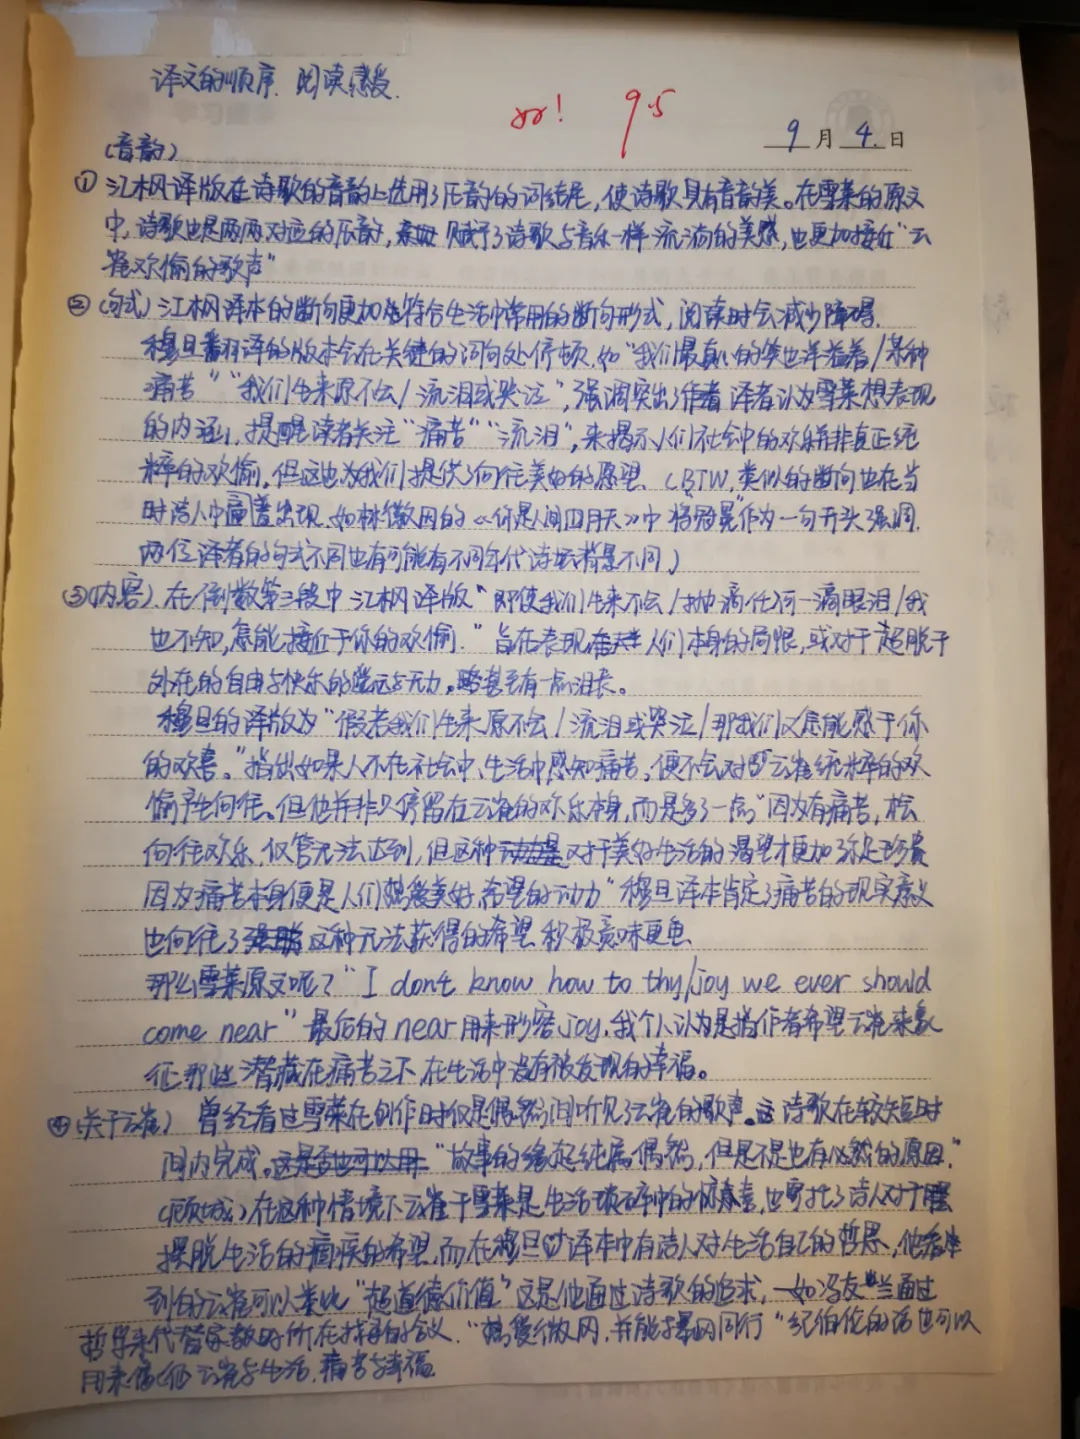 译文的顺序、阅读感受.
好! 9.5
9月4日
(音韵)
① 江枫译版在诗歌的音韵上选用了压韵的词结尾，使诗歌具有音韵美。在雪莱的原文
中，诗歌也是两两对应的压韵，赋予了诗歌与音乐一样流淌的美感，也更加接近“云
雀欢愉的歌声”
② (句式) 江枫译本的断句更加符合生活中常用的断句形式，阅读时会减少障碍.
穆旦翻译的版本会在关键的词句处停顿，如“我们最真心的笑也洋溢着/某种
痛苦”“我们生来原不会/流泪或哭泣”，强调突出了译者认为雪莱想表现
的内涵，提醒读者关注“痛苦”“流泪”，来揭示人们社会中的欢乐并非真正纯
粹的欢愉，但这也为我们提供了向往美好的愿望. (BTW，类似的断句也在当
时诗人中出现，如林徽因的《你是人间四月天》中将作为一句开头强调，
两位译者的句式不同也有可能有不同年代诗坛背景不同)
③(内容). 在倒数第三段中江枫译版“即使我们生来不会/抛滴任何一滴眼泪/我
也不知，怎能接近于你的欢愉.”旨在表现人们本身的局限，或对于超脱于
外在的自由与快乐的遥远与无力，甚至有一点沮丧。
穆旦的译版为“假若我们生来原不会/流泪或哭泣/那我们又怎能感于你
的欢喜。”指出如果人不在社会中、生活中感知痛苦，便不会对云雀纯粹的欢
愉产生向往。但他并非只停留在云雀的欢乐本身，而是多了一点“因为有痛苦，
向往欢乐，仅管无法达到，但这种对于美好生活的渴望才更加弥足珍贵
因为痛苦本身便是人们热爱美好、希望的动力”穆旦译本肯定了痛苦的现实意义
也向往了这种无法获得的希望，积极意味更重
那么雪莱原文呢？“I dont know how to thy/joy we ever should
come near”最后的near用来形容joy，我个人认为是指作者希望云雀来象
征那些潜藏在痛苦之下，在生活中没有被发现的幸福。
④(关于云雀) 曾经看过雪莱在创作时仅是偶然间听见了云雀的歌声。这诗歌在较短时
间内完成。“故事的缘起纯属偶然，但是不是也有必然的原因.”
(顾城) 在这种情境下云雀于雪莱是生活琐碎中的惊喜，也寄托了诗人对于
摆脱生活的痼疾的希望，而在穆旦译本中有诗人对生活自己的哲思，他看
到的云雀可以类比“超道德价值”这是他通过诗歌的追求，一如冯友兰通过
哲学来代替宗教的所在找寻的含义.“热爱微风，并能与暴风同行”纪伯伦的话也可以
用来云雀与生活，痛苦与幸福.